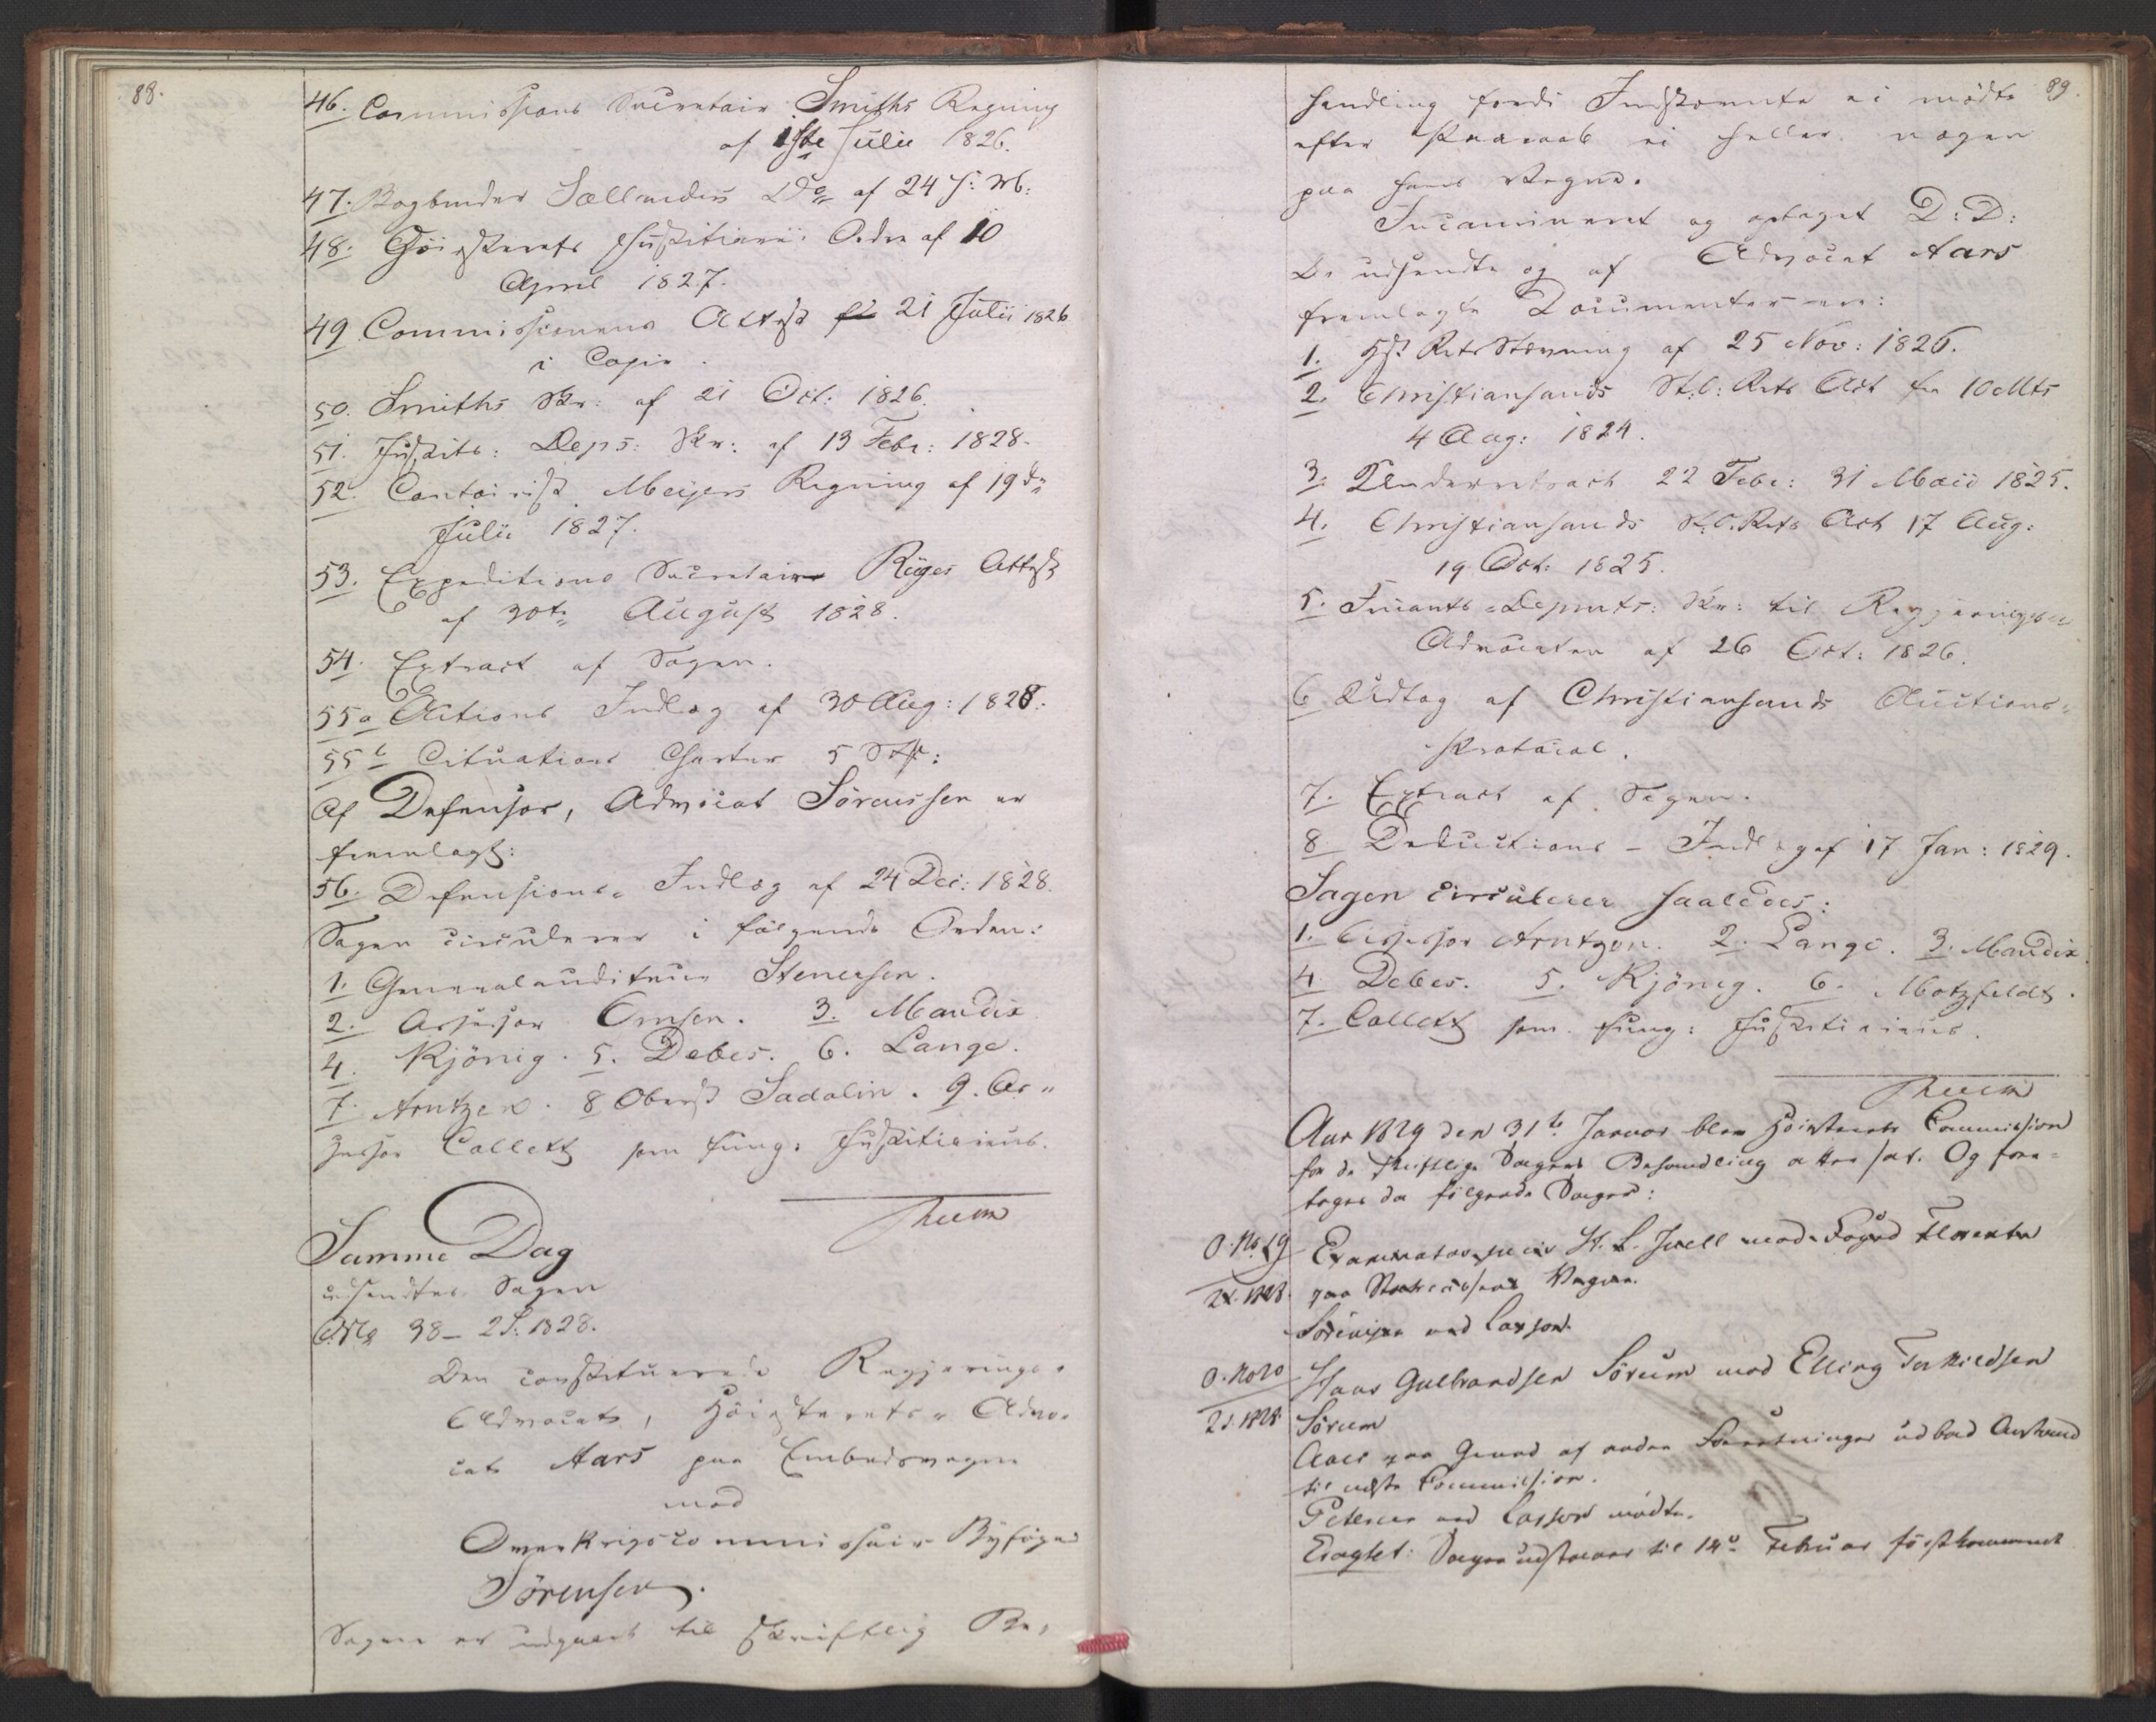 88.
46. Commissions Secretair Smiths Regning
af 1ste Julii 1826.
47. Bogbinder Sællanders Do af 24 s: M:
48. Höiesterets Justitiarii Ordre af 10
April 1827.
49 Commissionens Attest 21 Julii 1826
i Copie.
50. Smiths Skr: af 21 Oct: 1826.
51. Justits: Deps: Skr: af 13 Febr: 1828.
52. Contoirist Meijers Regning af 19de
Julii 1827.
53. Expeditions Secretair Ryges Attest
af 30te August 1828.
54. Extract af Sagen.
55a Actions Indlæg af 30 Aug: 1828.
55b Cituations Charter 5 Stk:
Af Defensor, Advocat Sörenssen er
fremlagt:
56. Defensions-Indlæg af 24 Dec: 1828.
Sagen circulerer i fölgende Orden:
1. Generalauditeur Stenersen.
2. Assessor Omsen. 3. Mandix.
4. Kjönig. 5. Debes. 6. Lange.
7. Arntzen. 8 Oberst Sadolin. 9. As-
sessor Collett som fung: Justitiarius.
Samme Dag
udsendtes Sagen
O. No 38 - 2 S: 1828.
Den constituerede Regjerings-
Advocat, Höiesterets-Advo-
cat Aars paa Embedsvegne
mod
Overkrigscommissair Byfoged
Sörensen.
Sagen er udgaaet til skriftlig Be-
89.
handling fordi Indstævnte ei mödte
efter Paaraab ei heller nogen
paa hans Vegne.
Incamineret og optaget D: D:
De udsendte og af Advocat Aars
fremlagte Documenter ere:
1. Hst Rets Stævning af 25 Nov: 1826.
2. Christiansands St: O: Rets Act fra 10 Mts
4 Aug: 1824.
3. Underretsact 22 Febr: 31 Maii 1825.
4. Christiansands St. O. Rets Act 17 Aug:
19 Oct: 1825.
5. Finants-Depmts: Skr: til Regjerings-
Advocaten af 26 Oct: 1826.
6 Udtog af Christiansands Auctions-
Protocol.
7. Extract af Sagen.
8 Deductions-Indlæg af 17 Jan: 1829.
Sagen circulerer saaledes:
1. Assessor Arntzen. 2. Lange. 3. Mandix
4 Debes. 5. Kjönig. 6. Motzfeldt.
7. Collett som fung: Justitiarius.
Aar 1829 den 31te Januar blev Höiesterets Commission
for de skriftlige Sagers Behandling atter sat. Og fore-
toges da fölgende Sager:
O. No. 19
2 S. 1828.
Examinatus juris H. L. Juell mod Foged Florentz
paa Statscassens Vegne.
Sörenssen mod Lasson.
O. No 20
2 S. 1828
Hans Gulbrandsen Sörum mod Elling Terkildsen
Sörum
Aars paa Grund af andre Forretninger udbad Anstand
til næste Commission.
Petersen mod Lasson mödte.
Eragtet: Sagen udstaaer til 14de Februar förstkommende